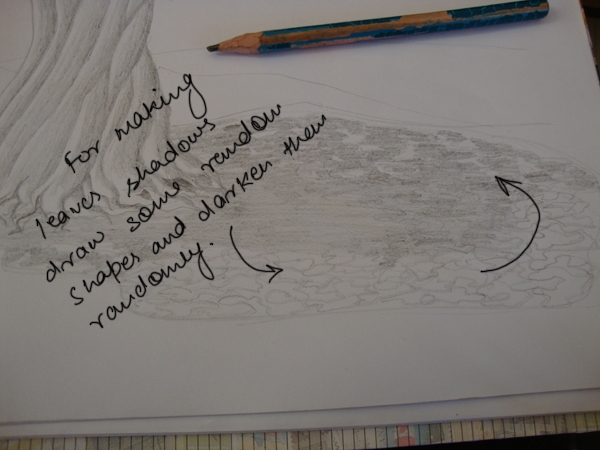 For making
leaves shadows
draw some random
shapes and darken them
randomly.